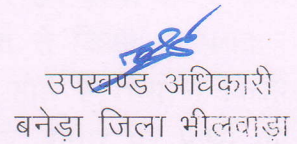 उपखण्ड अधिकारी
बनेड़ा जिला भीलवाड़ा